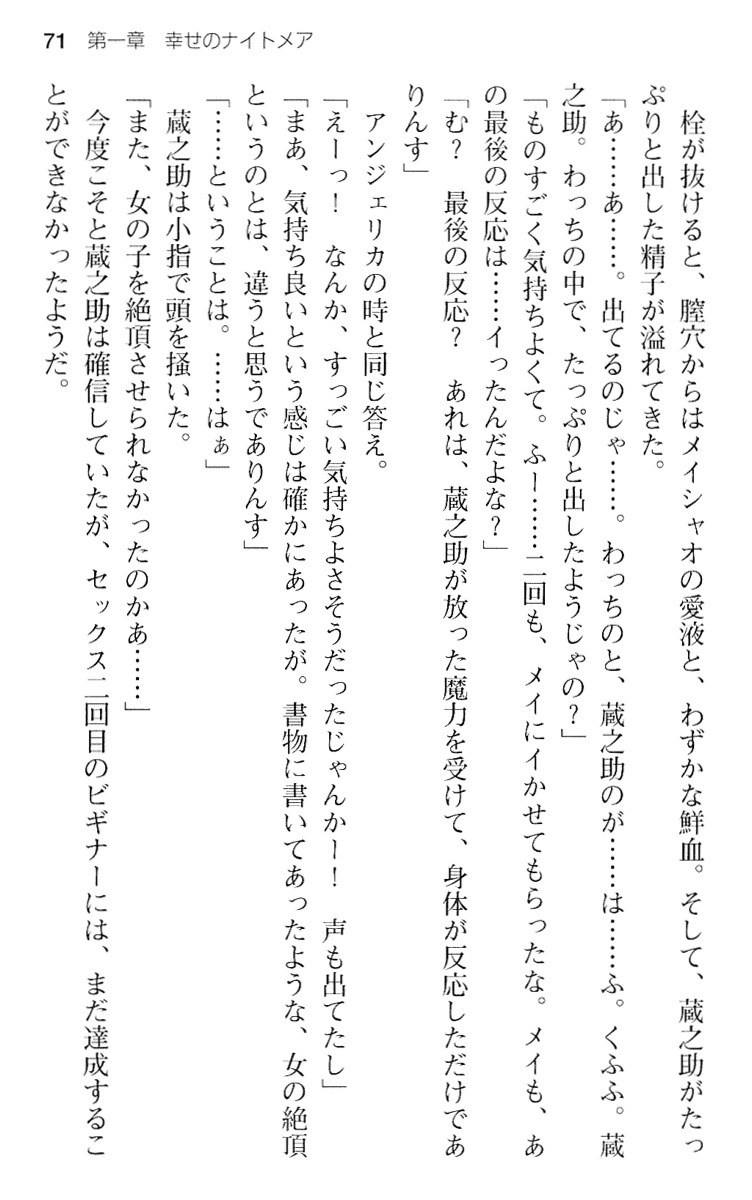 71　第一章　幸せのナイトメア
　栓が抜けると、膣穴からはメイシャオの愛液と、わずかな鮮血。そして、蔵之助がたっ
ぷりと出した精子が溢れてきた。
「あ……あ……。出てるのじゃ……。わっちのと、蔵之助のが……は……ふ。くふふ。蔵
之助。わっちの中で、たっぷりと出したようじゃの？」
「ものすごく気持ちよくて。ふー……二回も、メイにイかせてもらったな。メイも、あ
の最後の反応は……イったんだよな？」
「む？　最後の反応？　あれは、蔵之助が放った魔力を受けて、身体が反応しただけであ
りんす」
　アンジェリカの時と同じ答え。
「えーっ！　なんか、すっごい気持ちよさそうだったじゃんかー！　声も出てたし」
「まあ、気持ち良いという感じは確かにあったが。書物に書いてあったような、女の絶頂
というのとは、違うと思うでありんす」
「……ということは。……はぁ」
　蔵之助は小指で頭を掻いた。
「また、女の子を絶頂させられなかったのかあ……」
　今度こそと蔵之助は確信していたが、セックス二回目のビギナーには、まだ達成するこ
とができなかったようだ。